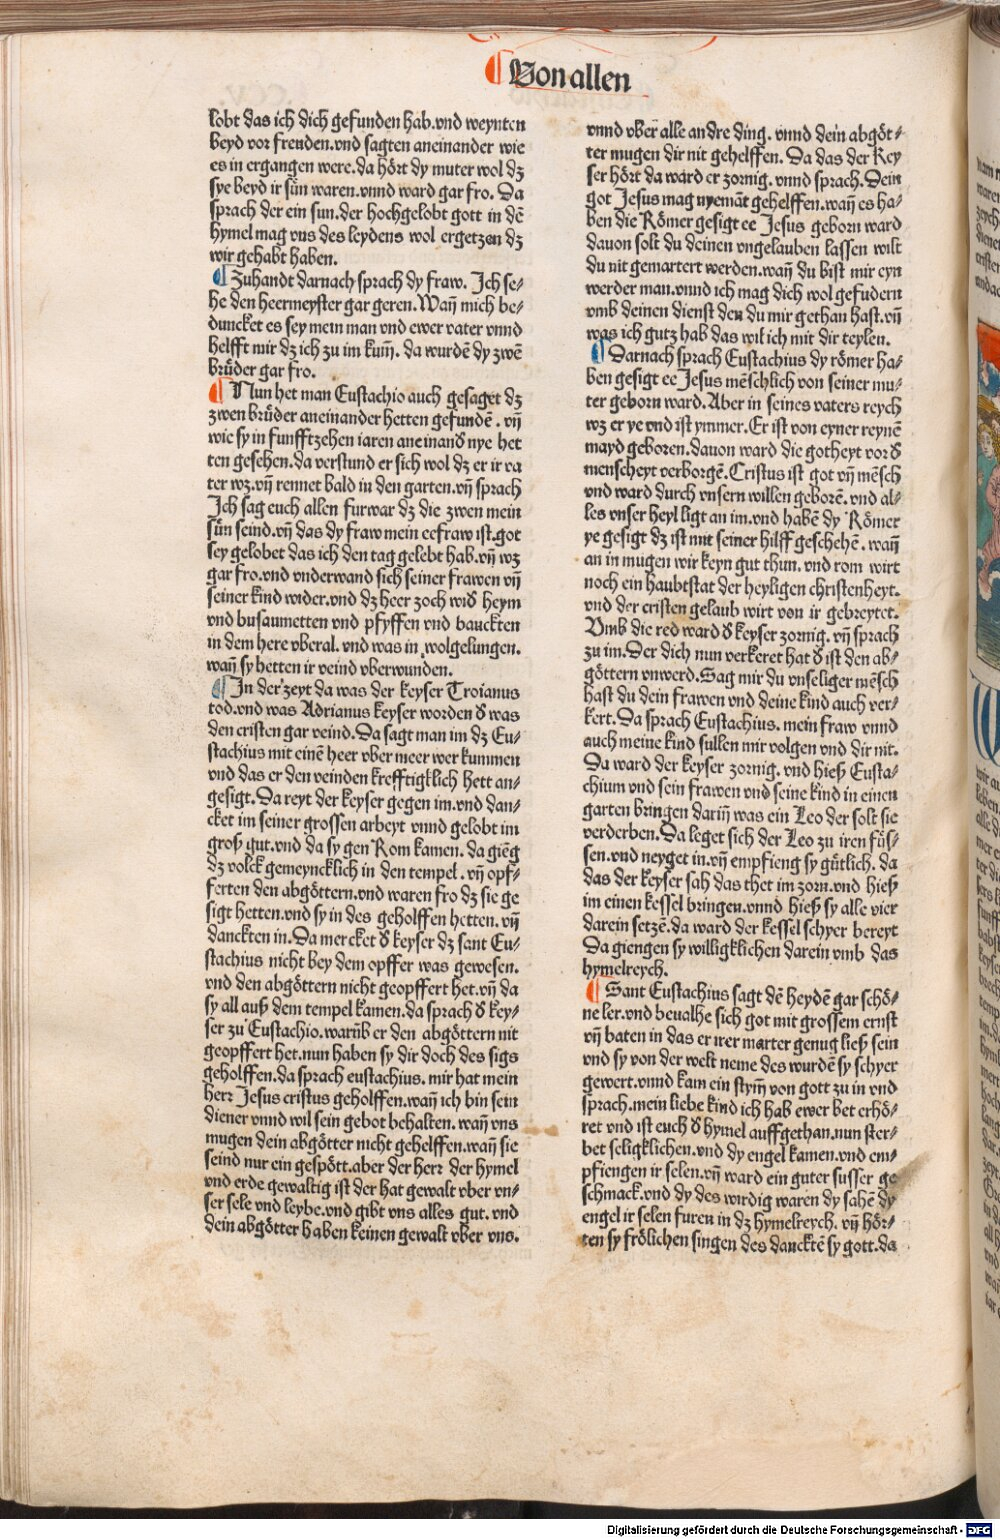 Von allen
lobt das ich dich gefunden hab.vnd weynten
beyd vor freuden.vnd sagten aneinander wie
es in ergangen were.da hört dy muter wol dz
sye beyd ir sün waren.vnnd ward gar fro. Da
sprach der ein sun.der hochgelobt gott in dē
hymel mag vns des leydens wol ergetzen dz
wir gehabt haben.
Zuhandt darnach sprach dy fraw. Ich se⸗
he den heermeyster gar geren.Wañ mich be⸗
duncket es sey mein man vnd ewer vater vnnd
helfft mir dz ich zu im kum̄. da wurdē dy zwē
brüder gar fro.
Nun het man Eustachio auch gesaget dz
zwen brüder aneinander hetten gefundē. vñ
wie sy in funfftzehen iaren aneinanď nye het
ten gesehen.da verstund er sich wol dz er ir va
ter wz.vñ rennet bald in den garten.vñ sprach
Ich sag euch allen furwar dz die zwen mein
sün seind.vñ das dy fraw mein eefraw ist.got
sey gelobet das ich den tag gelebt hab.vñ wz
gar fro.vnd vnderwand sich seiner frawen vñ
seiner kind wider.vnd dz heer zoch wiď heym
vnd busaumetten vnd pfyffen vnd bauckten
in dem here vberal. vnd was in wolgelungen.
wañ sy hetten ir veind vberwunden.
In der zeyt da was der keyser Troianus
tod.vnd was Adrianus keyser worden ď was
den cristen gar veind.Da sagt man im dz Eu⸗
stachius mit einē heer vber meer wer kummen
vnd das er den veinden krefftigklich hett an⸗
gesigt.Da reyt der keyser gegen im.vnd dan⸗
cket im seiner grossen arbeyt vnnd gelobt im
groß gut.vnd da sy gen Rom kamen. da giēg
dz volck gemeyncklich in den tempel.vñ opf⸗
ferten den abgöttern.vnd waren fro dz sie ge
sigt hetten.vnd sy in des geholffen hetten. vñ
danckten in.Da mercket ď keyser dz sant Eu⸗
stachius nicht bey dem opffer was gewesen.
vnd den abgöttern nicht geopffert het.vñ da
sy all auß dem tempel kamen.da sprach ď key⸗
ser zu Eustachio.warūb er den abgöttern nit
geopffert het.nun haben sy dir doch des sigs
geholffen.da sprach eustachius. mir hat mein
herr Jesus cristus geholffen.wañ ich bin sein
diener vnnd wil sein gebot behalten. wañ vns
mugen dein abgötter nicht gehelffen.wañ sie
seind nur ein gespött.aber der herr der hymel
vnd erde gewaltig ist der hat gewalt vber vn⸗
ser sele vnd leybe.vnd gibt vns alles gut. vnd
dein abgötter haben keinen gewalt vber vns.
vnnd vber alle andre ding. vnnd dein abgöt⸗
ter mugen dir nit gehelffen. Da das der Key
ser hört da ward er zornig. vnnd sprach.Dein
got Jesus mag nyemāt gehelffen.wañ es ha⸗
ben die Römer gesigt ee Jesus geborn ward
dauon solt du deinen vngelauben lassen wilt
du nit gemartert werden.wañ du bist mir eyn
werder man.vnnd ich mag dich wol gefudern
vmb deinen dienst den du mir gethan hast.vñ
was ich gutz hab das wil ich mit dir teylen.
Darnach sprach Eustachius dy römer ha⸗
ben gesigt ee Jesus mēschlich von seiner mu⸗
ter geborn ward.Aber in seines vaters reych
wz er ye vnd ist ymmer.Er ist von eyner reynē
mayd geboren.dauon ward die gotheyt vor ď
menscheyt verborgē.Cristus ist got vñ mēsch
vnd ward durch vnsern willen geborē.vnd al⸗
les vnser heyl ligt an im.vnd habē dy Römer
ye gesigt dz ist mit seiner hilff geschehē. wañ
an in mugen wir keyn gut thun. vnd rom wirt
noch ein haubtstat der heyligen christenheyt.
vnd der cristen gelaub wirt von ir gebreytet.
Vmb die red ward ď keyser zornig. vñ sprach
zu im.Der dich nun verkeret hat ď ist den ab⸗
göttern vnwerd.Sag mir du vnseliger mēsch
hast du dein frawen vnd deine kind auch ver⸗
kert. Da sprach Eustachius. mein fraw vnnd
auch meine kind sullen mir volgen vnd dir nit.
Da ward der keyser zornig. vnd hieß Eusta⸗
chium vnd sein frawen vnd seine kind in einen
garten bringen dariñ was ein Leo der solt sie
verderben.Da leget sich der Leo zu iren füs⸗
sen.vnd neyget in.vñ empfieng sy gütlich. da
das der keyser sah das thet im zorn.vnd hieß
im einen kessel bringen.vnnd hieß sy alle vier
darein setzē.da ward der kessel schyer bereyt
Da giengen sy willigklichen darein vmb das
hymelreych.
Sant Eustachius sagt dē heydē gar schö⸗
ne ler.vnd beualhe sich got mit grossem ernst
vñ baten in das er irer marter genug ließ sein
vnd sy von der welt neme des wurdē sy schyer
gewert.vnnd kam ein stym̄ von gott zu in vnd
sprach.mein liebe kind ich hab ewer bet erhö⸗
ret vnd ist euch ď hymel auffgethan.nun ster⸗
bet seligklichen.vnd dy engel kamen.vnd em⸗
pfiengen ir selen.vñ ward ein guter susser ge
schmack.vnd dy des wirdig waren dy sahē dy
engel ir selen furen in dz hymelreych. vñ hör⸗
ten sy frölichen singen des dancktē sy gott.da
Digitalisierung gefördert durch die Deutsche Forschungsgemeinschaft - DFG